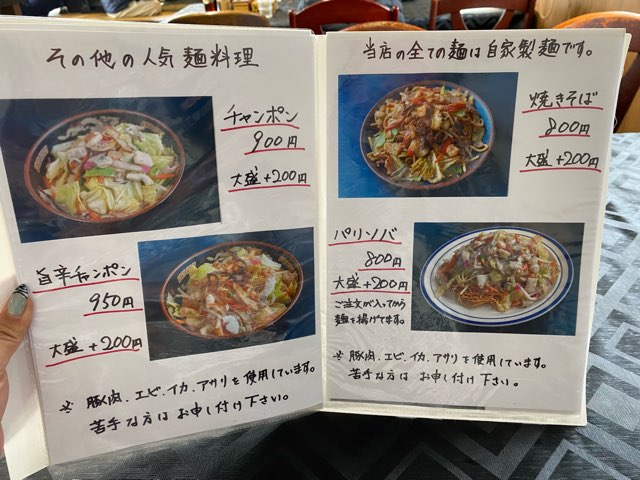 その他の人気麺料理
チャンポン
900円
大盛+200円
旨辛チャンポン
950円
大盛+200円
※豚肉.エビ.イカ.アサリを使用しています。
苦手な方はお申し付け下さい。
当店の全ての麺は自家製麺です。
焼きそば
800円
大盛+200円
パリソバ
800円
大盛+200円
ご注文が入ってから
麺を揚げてます。
※豚肉.エビ.イカ.アサリを使用しています。
苦手な方はお申し付け下さい。